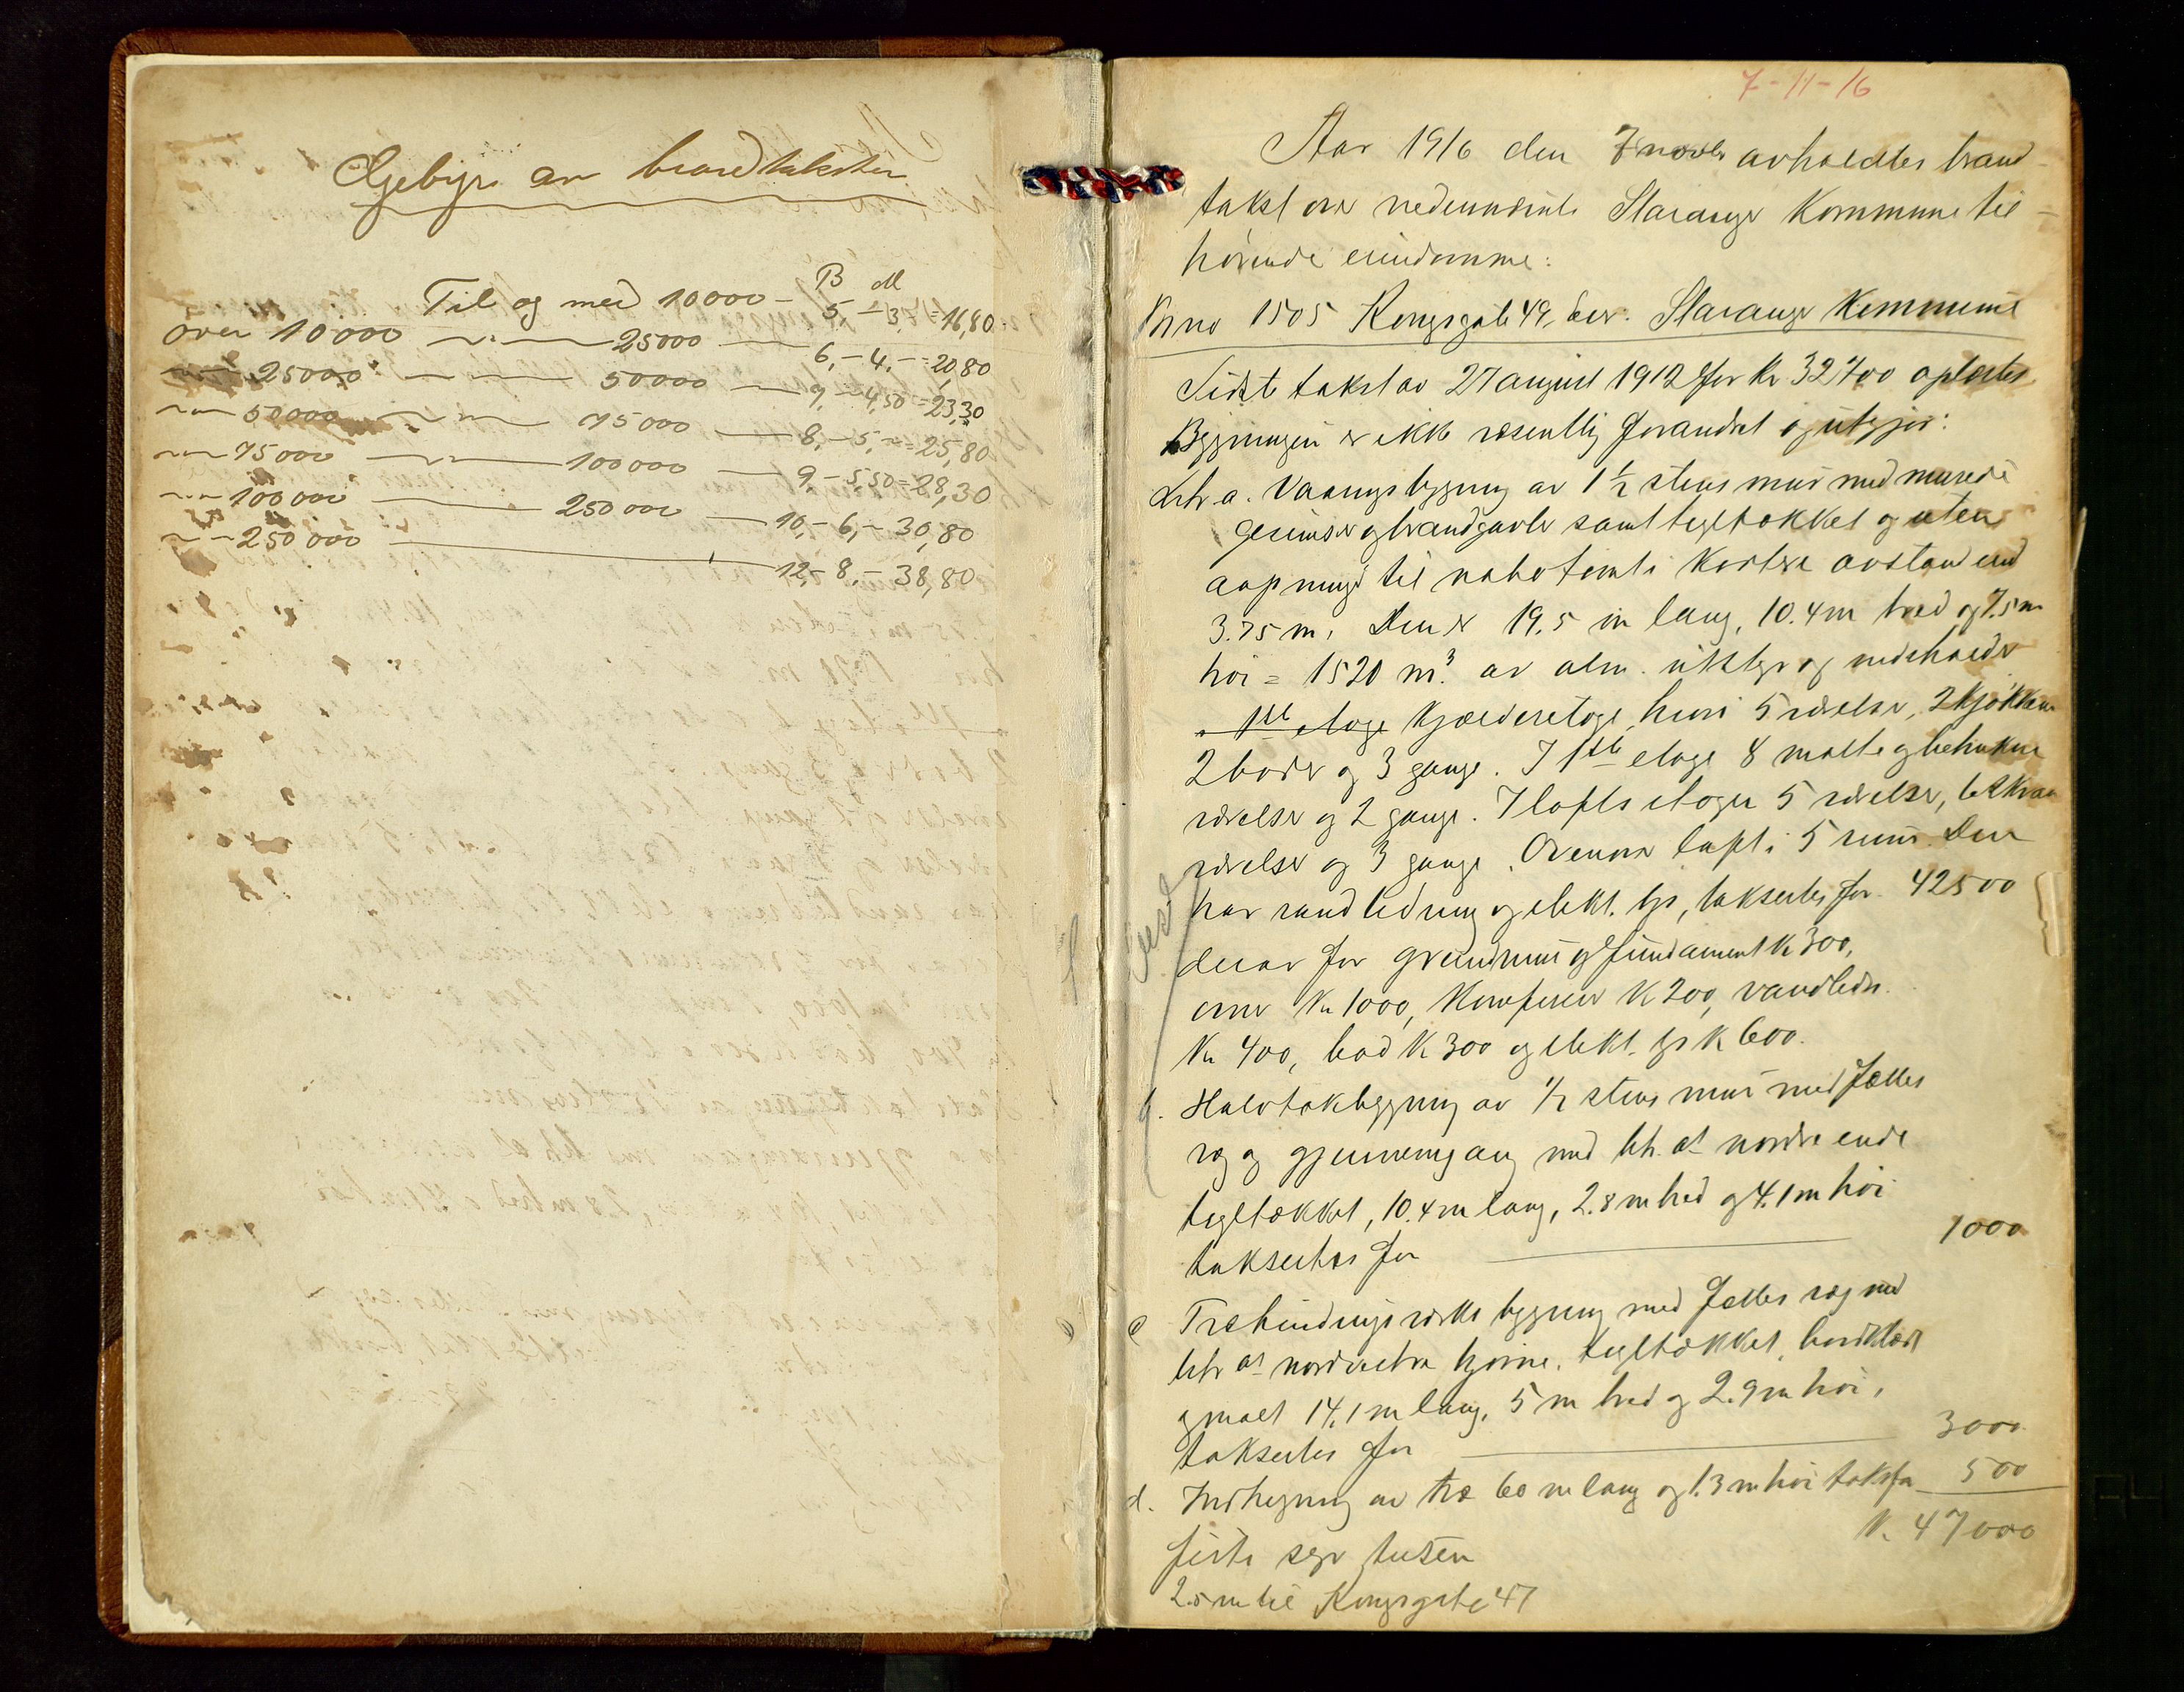 Gebyr av brandtakster
B M
Til og med 10000 - 5,- 3,- = 16,80
Over 10000 — " — 25000 — 6,- 4,- = 20,80
— " — 25000 — " — 50000 — 7,- 4,50 = 23,30
— " — 50000 — " — 75000 — 8,- 5,- = 25,80
— " — 75000 — " — 100000 — 9,- 5,50 = 28,30
— " — 100000 — 250000 — 10,- 6,- 30,80
— " — 250000 — 12,- 8,- 38,80
7-11-16
Aar 1916 den 7 novbr avholdtes brand-
takst over nedennævnte Stavanger Kommune til-
hørende eiendomme:
Br no 1505 Kongsgate 49, Eier. Stavanger Kommune
Sidste takst av 27 august 1912 for Kr 32700 oplæstes
Bygningen er ikke væsentlig forandret og utgjør:
Litr a. Vaaningsbygning av 1½ stens mur med murede
gesimser og brandgavle samt tegltækket og uten
aapninger til nabotomt i kortere avstand end
3.75 m. Den er 19.5 m lang, 10.4 m bred og 7.5 m
høi = 1520 m³. av alm. utstyr og indeholder
1ste etage Kjælderetage hvori 5 værelser, 2 kjøkkener
2 boder og 3 gange. I 1ste etage 8 malte og betrukne
værelser og 2 gange. I loftsetagen 5 værelser, 6 skraa
værelser og 3 gange. Ovenover loft i 5 rum. Den
har vandledning og elekt. lys, takseres for 42500
derav for grundmur og fundament K 300,
ovner Kr 1000, Komfurer K 200, vandledn.
Kr 400, bad K 300 og elekt. lys K 600.
b. Halvtakbygning av ½ stens mur med fælles
væg og gjennemgang med litr. a's nordre ende
tegltækket, 10.4 m lang, 2.8 m bred og 4.1 m høi
takseres for 1000
c Træbindingsverks bygning med fælles væg med
litr a's nordvestre hjørne, tegltækket, bordklædt
og malt 14.1 m lang, 5 m bred og 2.9 m høi,
takseres for 3000
d. Indhegning av træ 60 m lang og 1.3 m høi takst for 500
K. 47000
førti syv tusen
2.5 m til Kongsgate 47